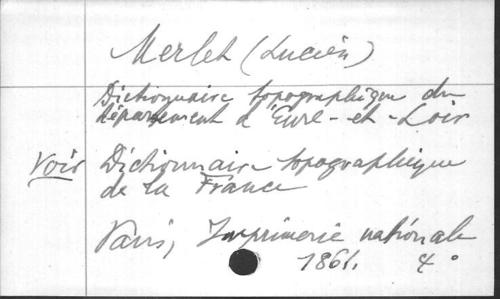 Merlet (Lucien)
Dictionnaire topographique du
département d'Eure-et-Loir
voir Dictionnaire topographique
de la France
Paris, Imprimerie nationale
1861. 4°